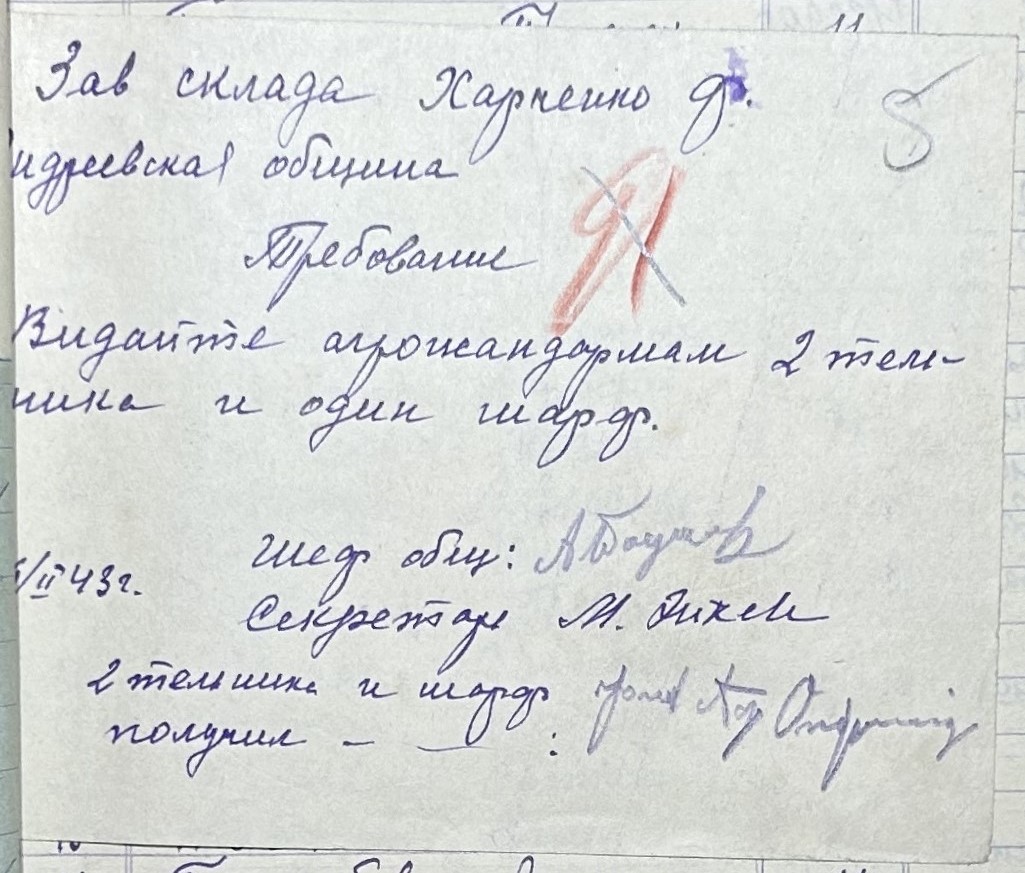 Зав склада Харченко Ф.
8
ндреевская община
91
Требование
Видайте агрожандармам 2 тель-
ника и один шарф.
Шеф общ:
/II 43 г.
Секретар М.
2 тельника и шарф
получил - :